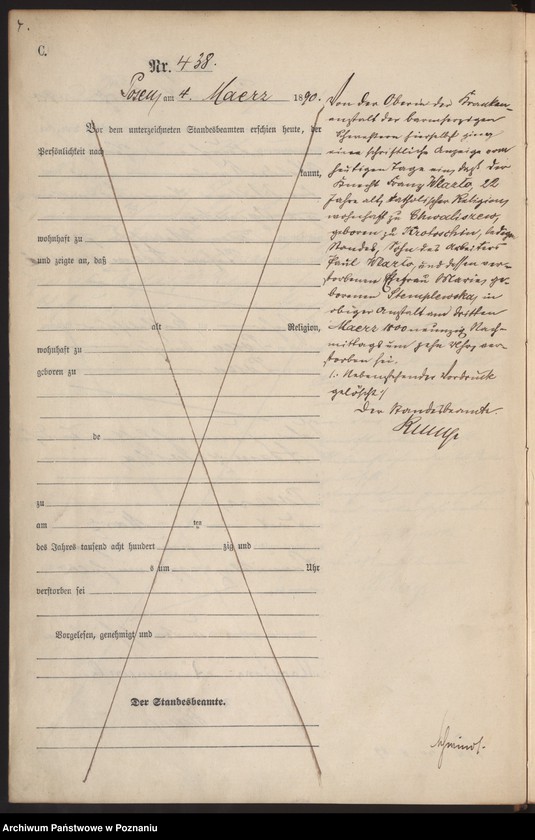 C.
Nr. 438.
Posen, am 4. Maerz 1890.
Vor dem unterzeichneten Standesbeamten erschien heute, der
Persönlichkeit nach
kannt,
wohnhaft zu
und zeigte an, daß
alt Religion,
wohnhaft zu
geboren zu
de
zu
am ten
des Jahres tausend acht hundert zig und
s um Uhr
verstorben sei
Vorgelesen, genehmigt und
Der Standesbeamte.
Von der Oberin der Kranken-
anstalt der barmherzigen
Schwestern hierselbst ging
eine schriftliche Anzeige vom
heutigen Tage ein, daß der
Knecht Franz Warto, 22
Jahre alt, katholischer Religion,
wohnhaft zu Chwaliszew,
geboren zu Krotoschin, ledigen
Standes, Sohn des Arbeiters
Paul Warto, und dessen ver-
storbenen Ehefrau Marie, ge-
borenen Stemplewska, in
obiger Anstalt am dritten
Maerz 1800 neunzig Nach-
mittags um zehn Uhr, ver-
storben sei.
/: Nebenstehender Vordruck
gelöscht :/
Der Standesbeamte.
Archiwum Państwowe w Poznaniu